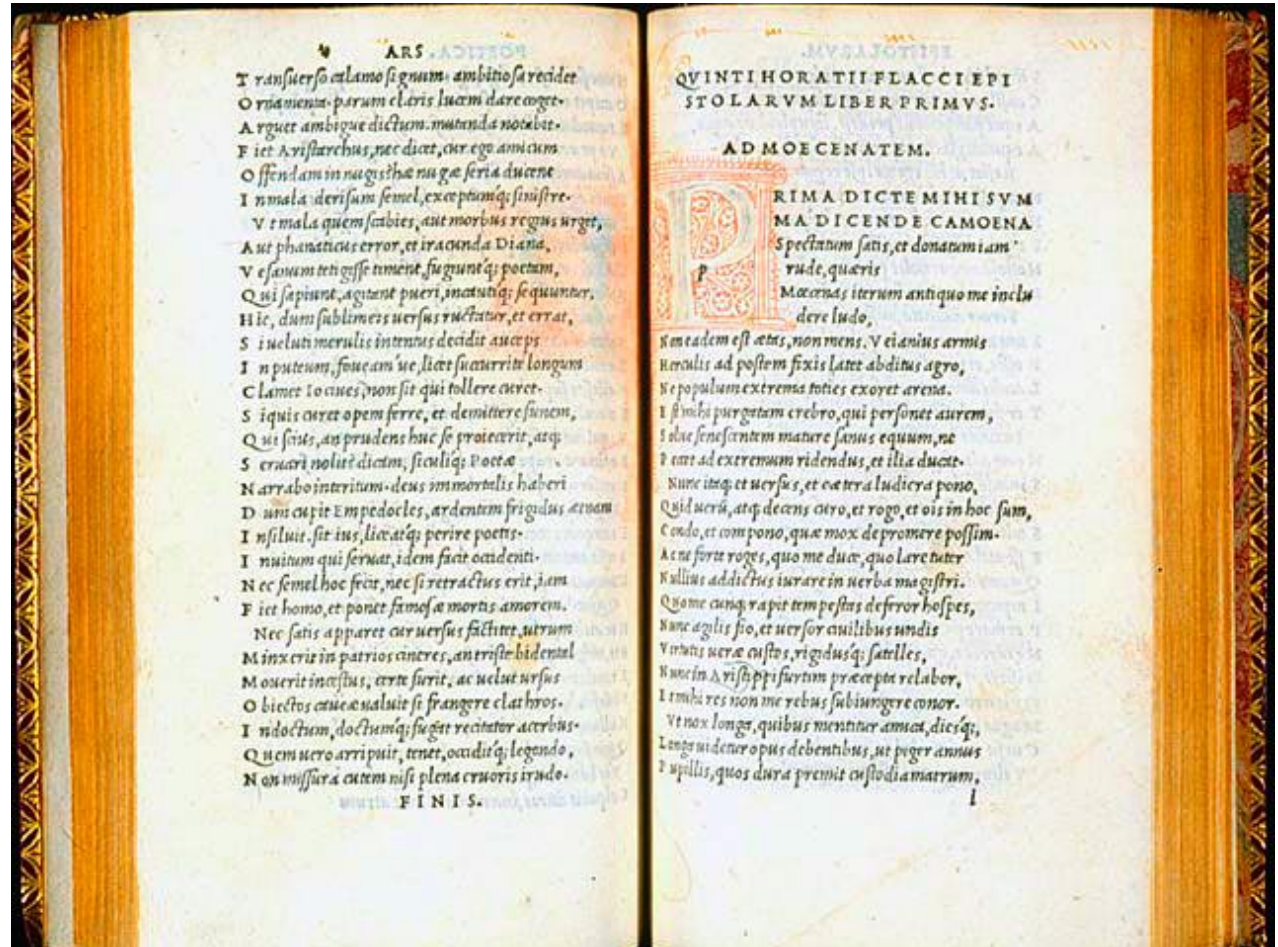 ARS
T ranſuerſo calamo ſignum. ambitioſa recidet
O rnamenta. parum claris lucem dare coget.
A rguet ambigue dictum. mutanda notabit.
F iet Ariſtarchus, nec dicet, cur ego amicum
O ffendam in nugis? hæ nugæ ſeria ducent
I n mala deriſum ſemel, exceptumq; ſiniſtre.
V t mala quem ſcabies, aut morbus regius urget,
A ut phanaticus error, et iracunda Diana,
V eſanum tetigiſſe timent, fugiuntq; poetam,
Q ui ſapiunt, agitant pueri, incautiq; ſequuntur.
H ic, dum ſublimeis uerſus ructatur, et errat,
S i ueluti merulis intentus decidit auceps
I n puteum, foueam ue, licet ſuccurrite longum
C lamet Io ciues, non ſit qui tollere curet.
S iquis curet opem ferre, et demittere funem,
Q ui ſcius, an prudens huc ſe proiecerit, atq;
S eruari nolit? dicam, ſiculiq; Poetæ
N arrabo interitum. deus immortalis haberi
D um cupit Empedocles, ardentem frigidus ætnam
I nſiluit. ſit ius, liceatq; perire poetis.
I nuitum qui ſeruat, idem facit occidenti.
N ec ſemel hoc fecit, nec ſi retractus erit, iam
F iet homo, et ponet famoſæ mortis amorem.
Nec ſatis apparet cur uerſus factitet, utrum
M inxerit in patrios cineres, an triſte bidental
M ouerit inceſtus, certe furit, ac uelut urſus
O biectos caueæ ualuit ſi frangere clathros.
I ndoctum, doctumq; fugat recitator acerbus.
Q uem uero arripuit, tenet, occiditq; legendo,
N on miſſura cutem niſi plena cruoris irudo.
FINIS.
QVINTI HORATII FLACCI EPI
STOLARVM LIBER PRIMVS.
AD MOECENATEM.
P RIMA DICTE MIHI SVM
MA DICENDE CAMOENA
p
Spectatum ſatis, et donatum iam
rude, quæris
Mœcenas iterum antiquo me inclu
dere ludo,
Non eadem eſt ætas, non mens. Veianius armis
Herculis ad poſtem fixis latet abditus agro,
Ne populum extrema toties exoret arena.
Eſt mihi purgatam crebro, qui perſonet aurem,
Solue ſeneſcentem mature ſanus equum, ne
Peccet ad extremum ridendus, et ilia ducat.
Nunc itaq; et uerſus, et cætera ludicra pono,
Quid uerũ, atq; decens curo, et rogo, et oĩs in hoc ſum,
Condo, et compono, quæ mox depromere poſſim.
Ac ne forte roges, quo me duce, quo lare tuter
Nullius addictus iurare in uerba magiſtri.
Quo me cunq; rapit tempeſtas deferor hoſpes,
Nunc agilis fio, et uerſor ciuilibus undis
Virtutis ueræ cuſtos, rigidusq; ſatelles,
Nunc in Ariſtippi furtim præcepta relabor,
Et mihi res non me rebus ſubiungere conor.
Vt nox longa, quibus mentitur amica, diesq;,
Longa uidetur opus debentibus, ut piger annus
Pupillis, quos dura premit cuſtodia matrum,
l